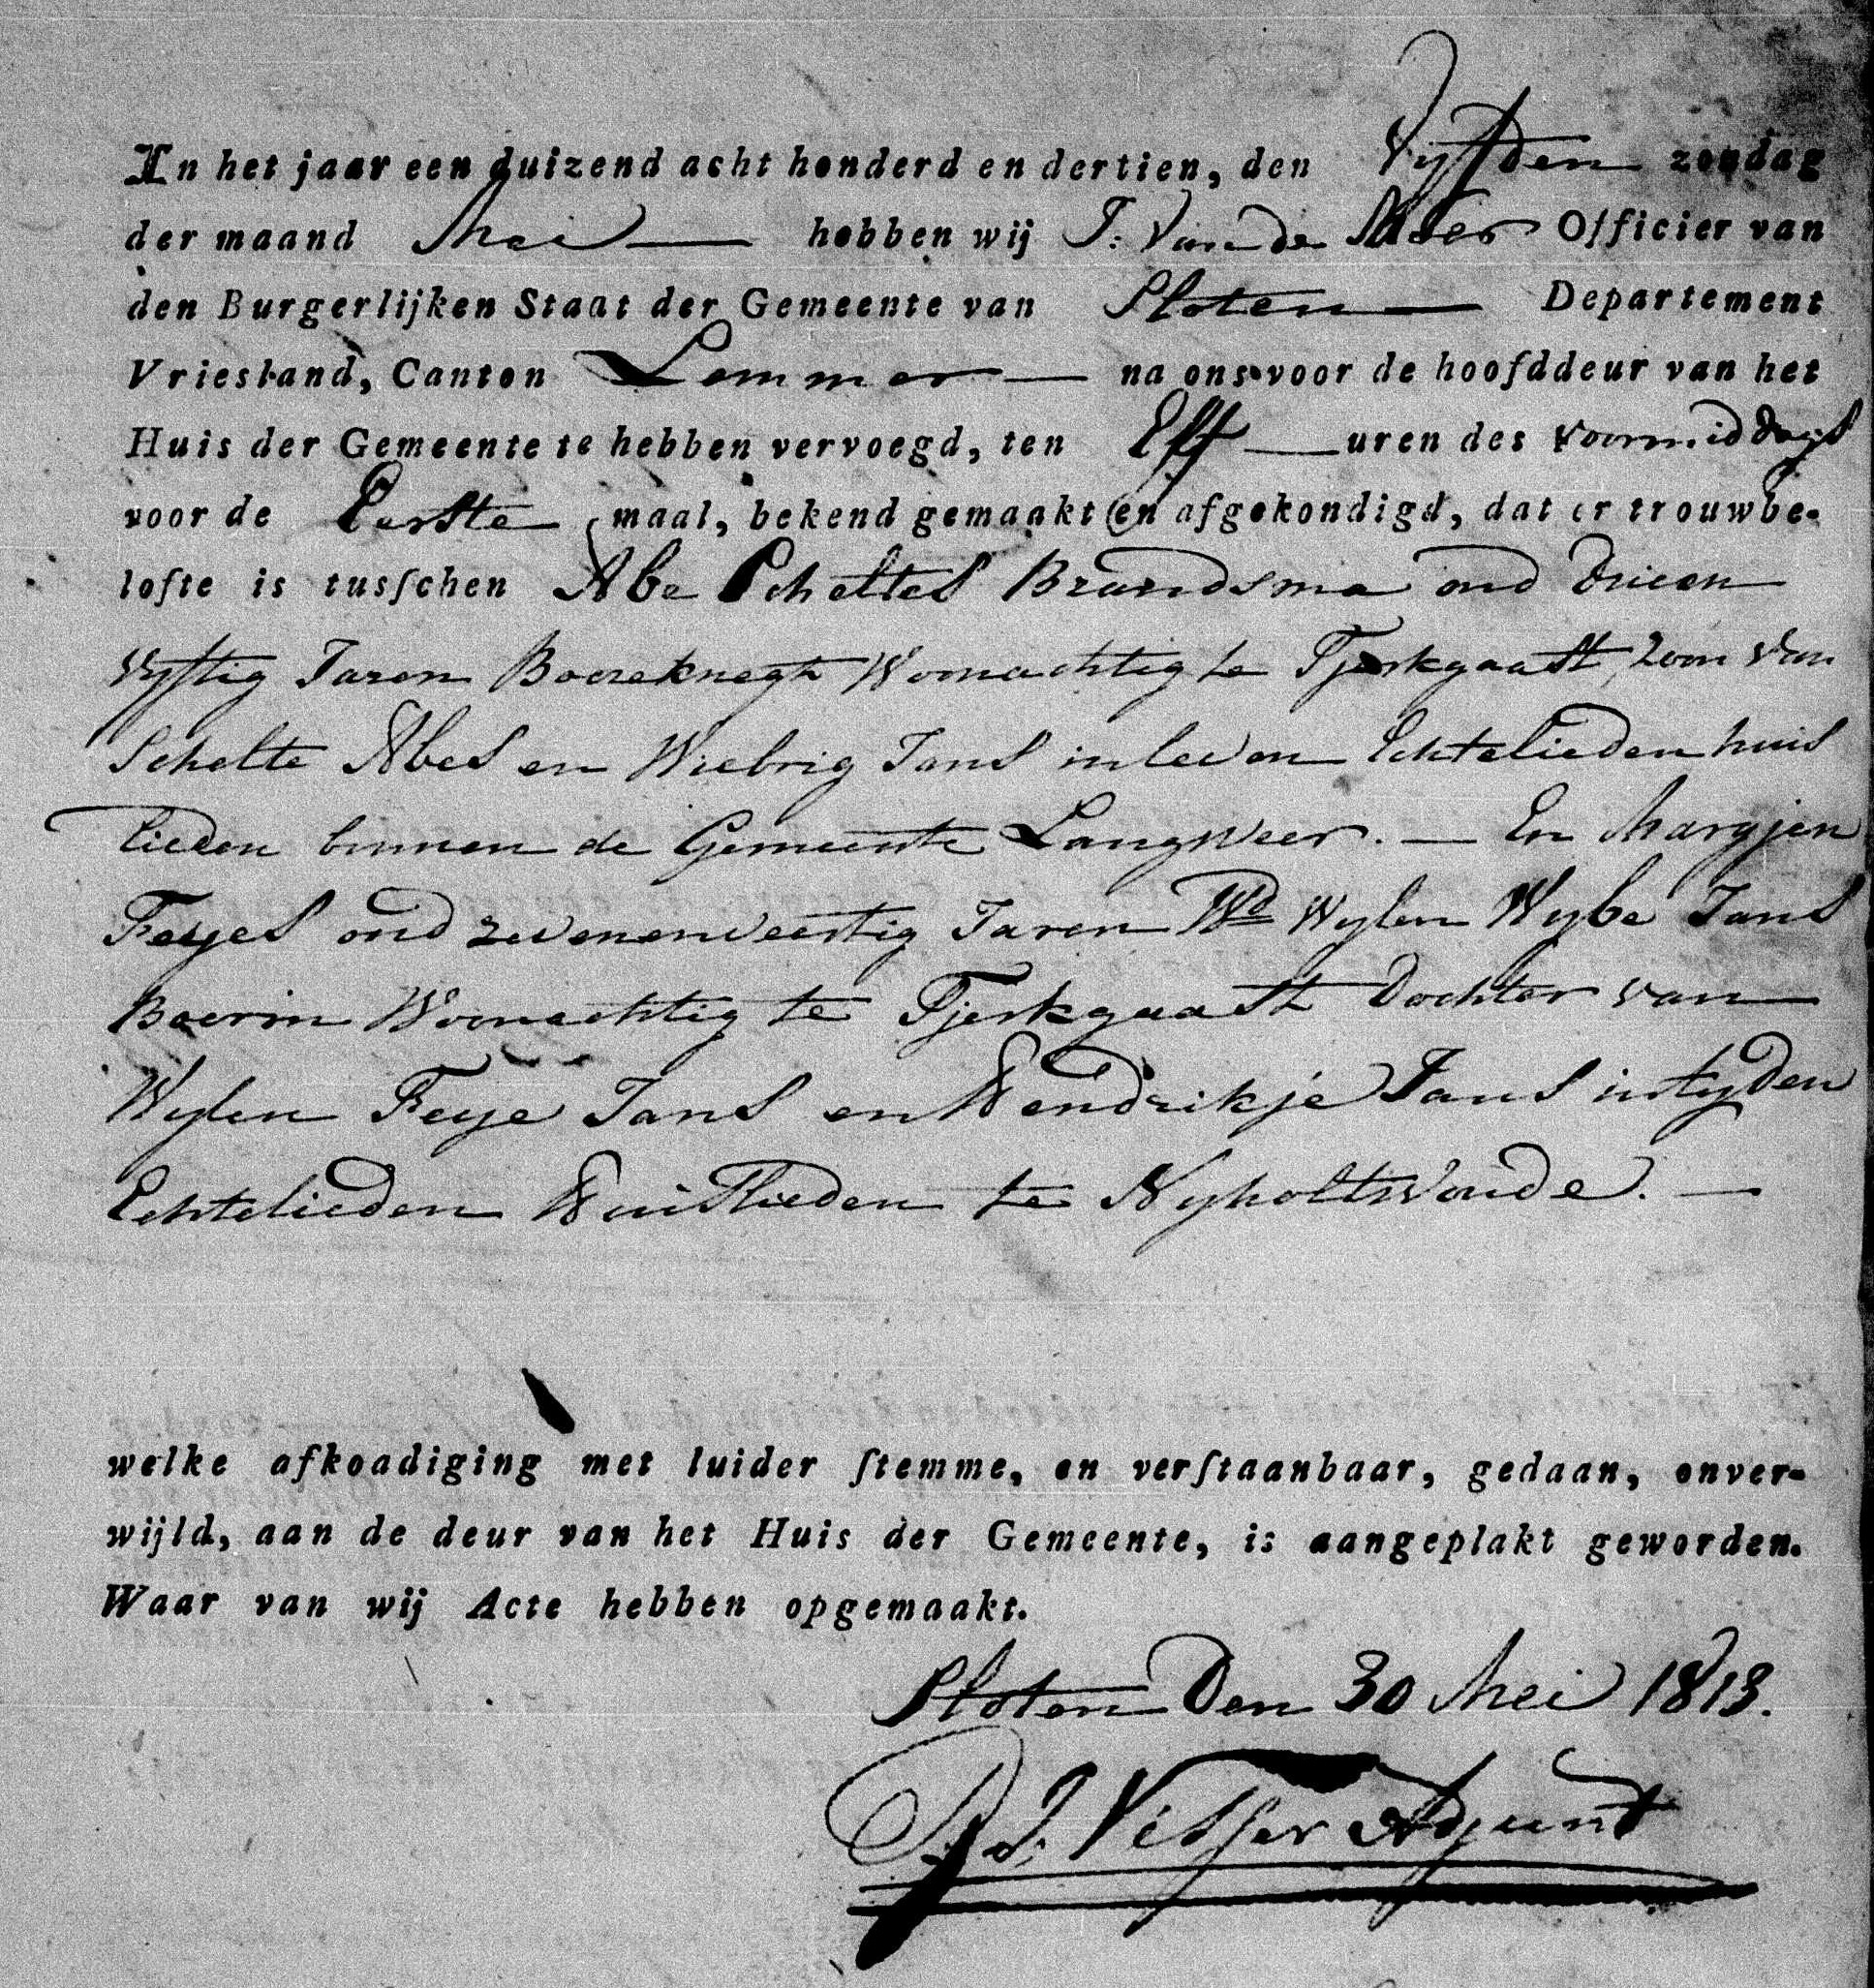 In het jaar een duizend acht honderd en dertien, den Vyfden zondag
der maand Mei hebben wij J: Van de Meer Officier van
den Burgerlijken Staat der Gemeente van Sloten Departement
Vriesland, Canton Lemmer na ons voor de hoofddeur van het
Huis der Gemeente te hebben vervoegd, ten Elf uren des voormiddags
voor de Eerste maal, bekend gemaakt en afgekondigd, dat er trouwbe-
lofte is tusſchen Abe Scheltes Brandsma oud drieen
vyftig Jaren Boereknegt Woonachtig te Tjerkgaast, zoon van
Schelte Abes en Wiebrig Jans in leven Echtelieden huis
lieden binnen de Gemeente Langweer. — En Margjen
Feyes oud zevenenveertig Jaren Wd Wylen Wybe Jans
Boerin Woonachtig te Tjerkgaast Dochter van
Wylen Feye Jans en Hendrikje Jans intyden
Echtelieden Huislieden te Nyholtwoude. —
welke afkoadiging met luider ſtemme, en verſtaanbaar, gedaan, onver-
wijld, aan de deur van het Huis der Gemeente, is aangeplakt geworden.
Waar van wij Acte hebben opgemaakt.
Sloten Den 30 Mei 1813.
Visser Adjunt